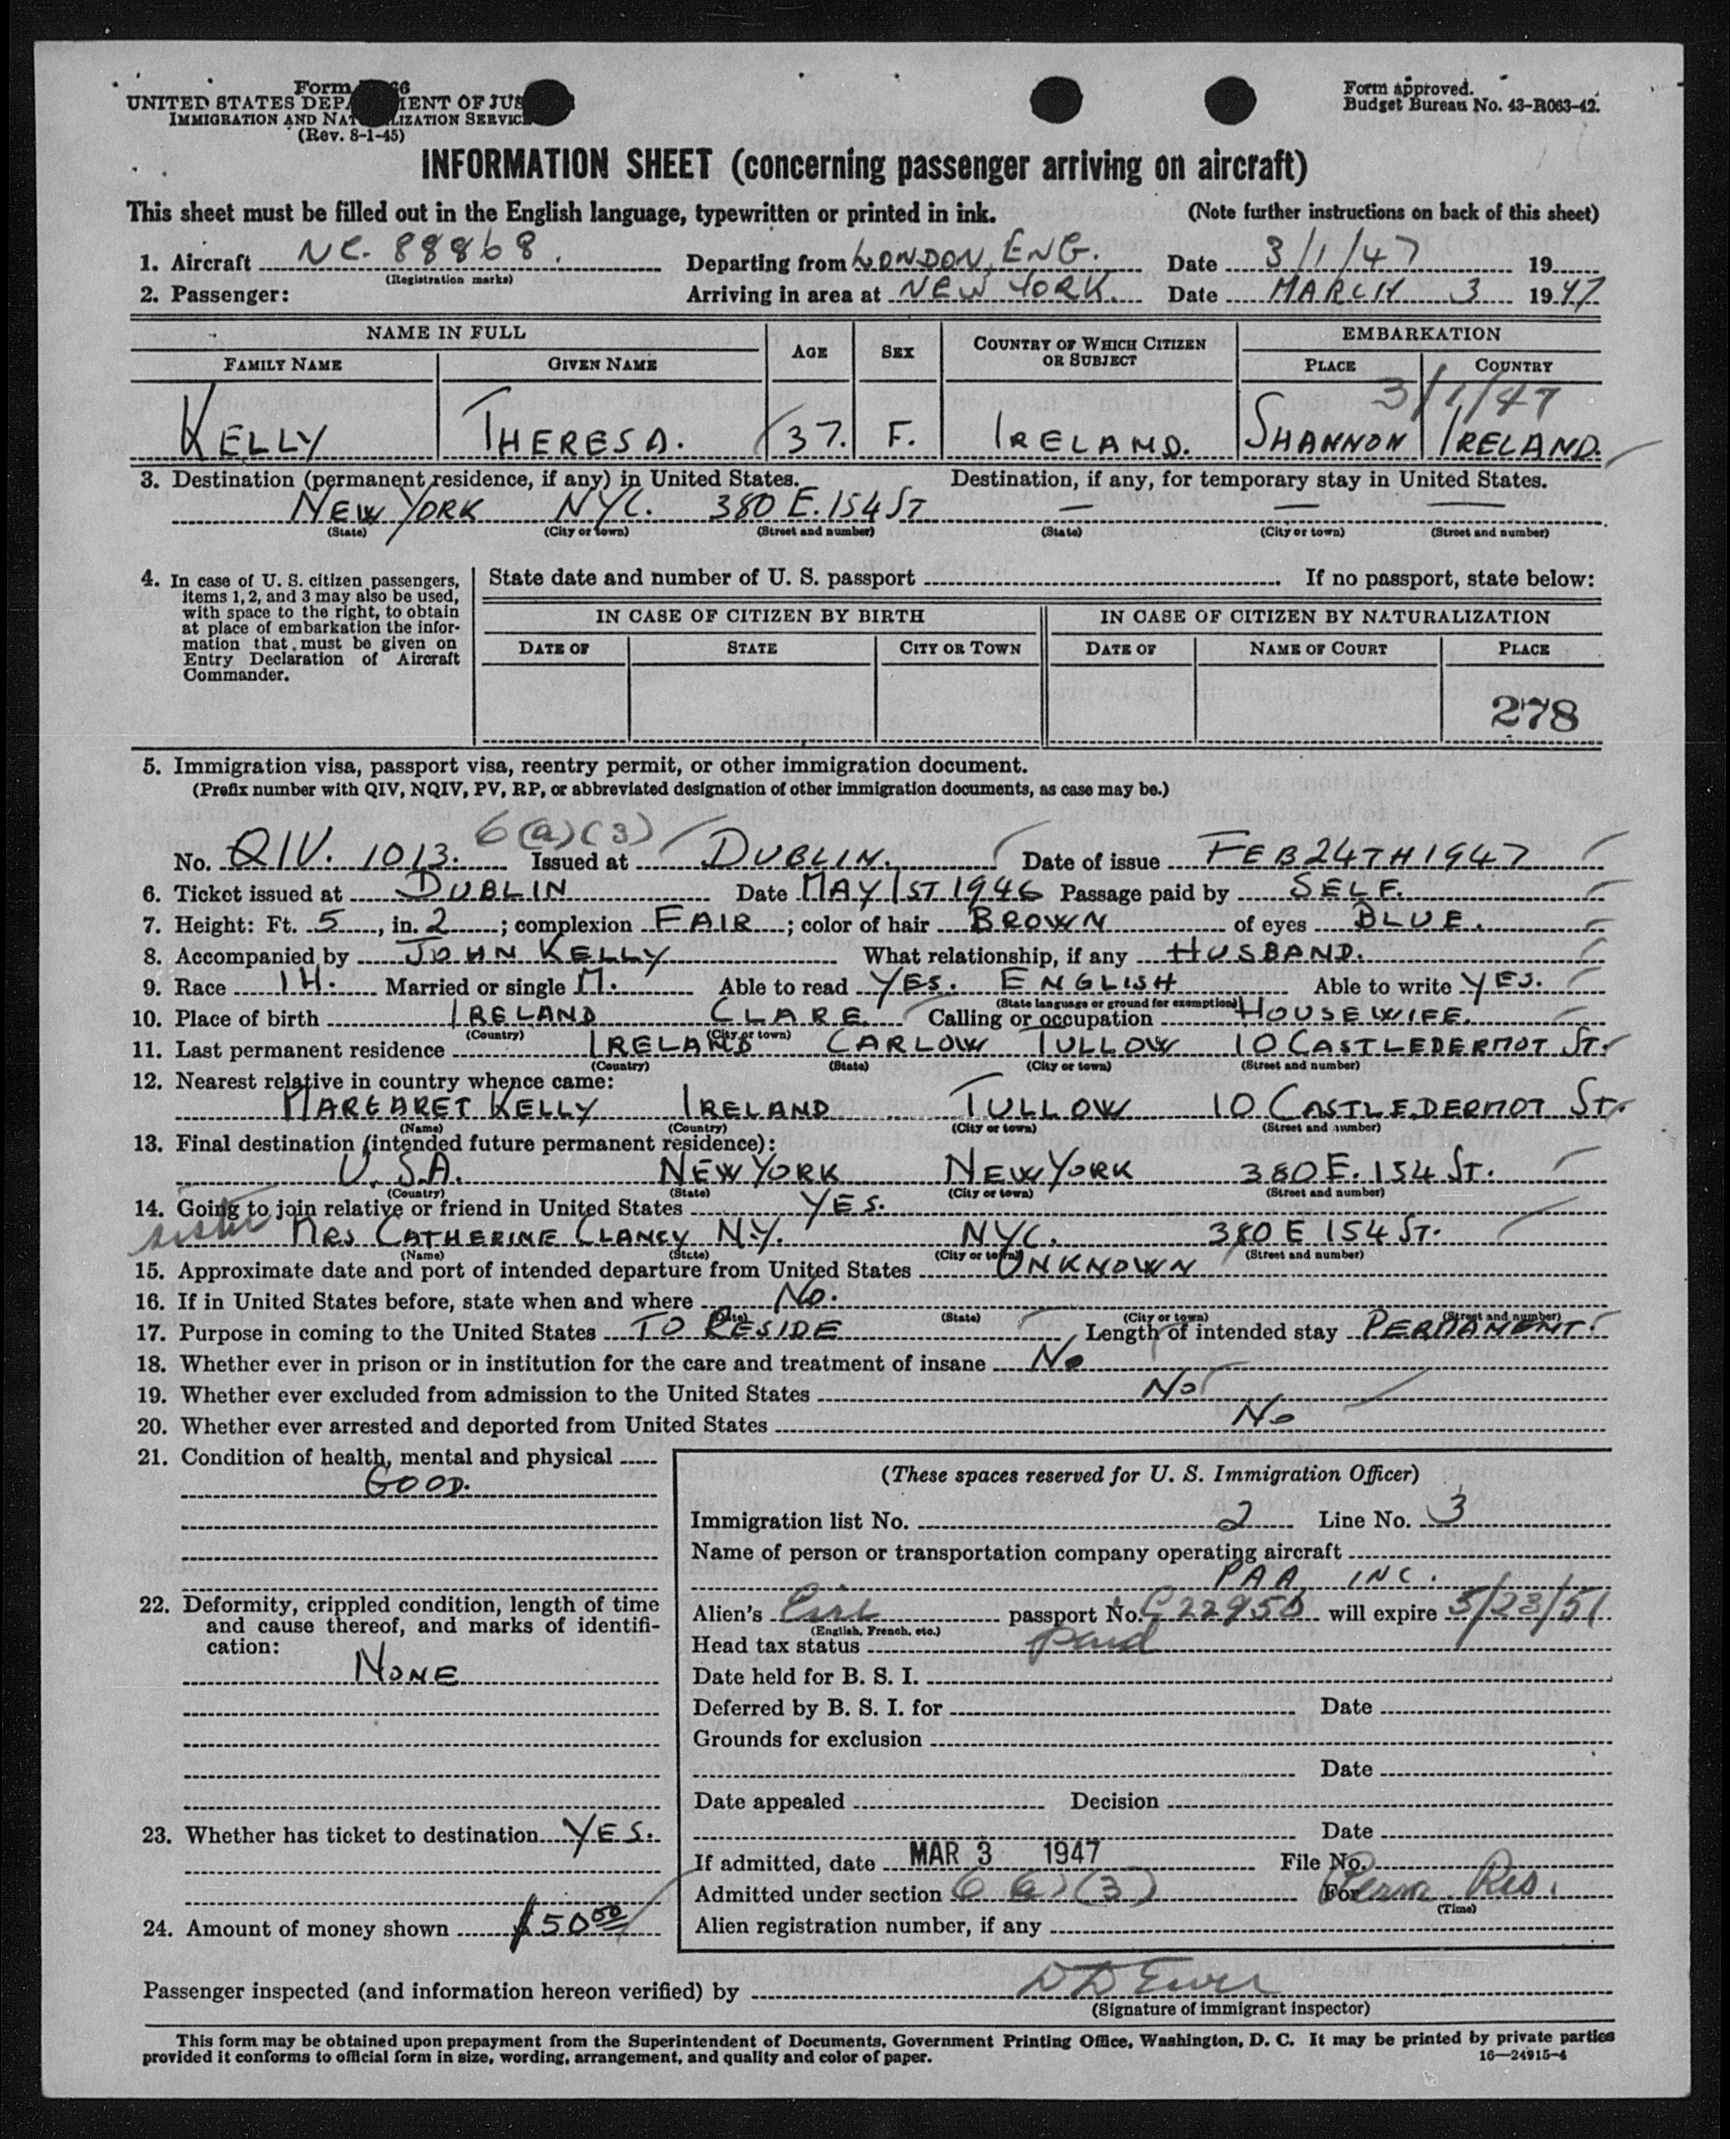 Form 66
UNITED STATES DEPA MENT OF JUS
IMMIGRATION AND NAT LIZATION SERVIC
(Rev. 8-1-45)
Form approved.
Budget Bureau No. 43-R063-42.
INFORMATION SHEET (concerning passenger arriving on aircraft)
This sheet must be filled out in the English language, typewritten or printed in ink. (Note further instructions on back of this sheet)
1. Aircraft NC. 88868. Departing from LONDON, ENG. Date 3/1/47 19
(Registration marks)
2. Passenger: Arriving in area at NEW YORK. Date MARCH 3 1947
NAME IN FULL AGE SEX COUNTRY OF WHICH CITIZEN OR SUBJECT EMBARKATION
FAMILY NAME GIVEN NAME PLACE COUNTRY
3/1/47
KELLY THERESA. 37. F. IRELAND. SHANNON IRELAND.
3. Destination (permanent residence, if any) in United States. Destination, if any, for temporary stay in United States.
NEW YORK NYC. 380 E. 154 ST — — —
(State) (City or town) (Street and number) (State) (City or town) (Street and number)
4. In case of U. S. citizen passengers, items 1, 2, and 3 may also be used, with space to the right, to obtain at place of embarkation the information that must be given on Entry Declaration of Aircraft Commander.
State date and number of U. S. passport If no passport, state below:
IN CASE OF CITIZEN BY BIRTH IN CASE OF CITIZEN BY NATURALIZATION
DATE OF STATE CITY OR TOWN DATE OF NAME OF COURT PLACE
278
5. Immigration visa, passport visa, reentry permit, or other immigration document.
(Prefix number with QIV, NQIV, PV, RP, or abbreviated designation of other immigration documents, as case may be.)
6(a)(3)
No. QIV. 1013. Issued at DUBLIN. Date of issue FEB 24TH 1947
6. Ticket issued at DUBLIN Date MAY 1ST 1946 Passage paid by SELF.
7. Height: Ft. 5, in. 2; complexion FAIR; color of hair BROWN of eyes BLUE.
8. Accompanied by JOHN KELLY What relationship, if any HUSBAND.
9. Race IH. Married or single M. Able to read YES. ENGLISH Able to write YES.
(State language or ground for exemption)
10. Place of birth IRELAND CLARE. Calling or occupation HOUSEWIFE.
(Country) (City or town)
11. Last permanent residence IRELAND CARLOW TULLOW 10 CASTLEDERMOT ST.
(Country) (State) (City or town) (Street and number)
12. Nearest relative in country whence came:
MARGARET KELLY IRELAND TULLOW 10 CASTLEDERMOT ST.
(Name) (Country) (City or town) (Street and number)
13. Final destination (intended future permanent residence):
U.S.A. NEW YORK NEW YORK 380 E. 154 ST.
(Country) (State) (City or town) (Street and number)
14. Going to join relative or friend in United States YES.
sister MRS CATHERINE CLANCY N.Y. NYC. 380 E 154 ST.
(Name) (State) (City or town) (Street and number)
15. Approximate date and port of intended departure from United States UNKNOWN
16. If in United States before, state when and where No.
(Date) (State) (City or town) (Street and number)
17. Purpose in coming to the United States TO RESIDE Length of intended stay PERMANENT.
18. Whether ever in prison or in institution for the care and treatment of insane No
19. Whether ever excluded from admission to the United States No
20. Whether ever arrested and deported from United States No
21. Condition of health, mental and physical
GOOD.
22. Deformity, crippled condition, length of time and cause thereof, and marks of identification:
NONE
23. Whether has ticket to destination YES.
24. Amount of money shown $50 50
(These spaces reserved for U. S. Immigration Officer)
Immigration list No. 2 Line No. 3
Name of person or transportation company operating aircraft
PAA INC.
Alien's Eire passport No. C22950 will expire 5/23/51
(English, French, etc.)
Head tax status paid
Date held for B. S. I.
Deferred by B. S. I. for Date
Grounds for exclusion
Date
Date appealed Decision
Date
If admitted, date MAR 3 1947 File No.
Admitted under section 6(a)(3) For Perm. Res.
(Time)
Alien registration number, if any
Passenger inspected (and information hereon verified) by
(Signature of immigrant inspector)
This form may be obtained upon prepayment from the Superintendent of Documents, Government Printing Office, Washington, D. C. It may be printed by private parties
provided it conforms to official form in size, wording, arrangement, and quality and color of paper. 16—24915-4